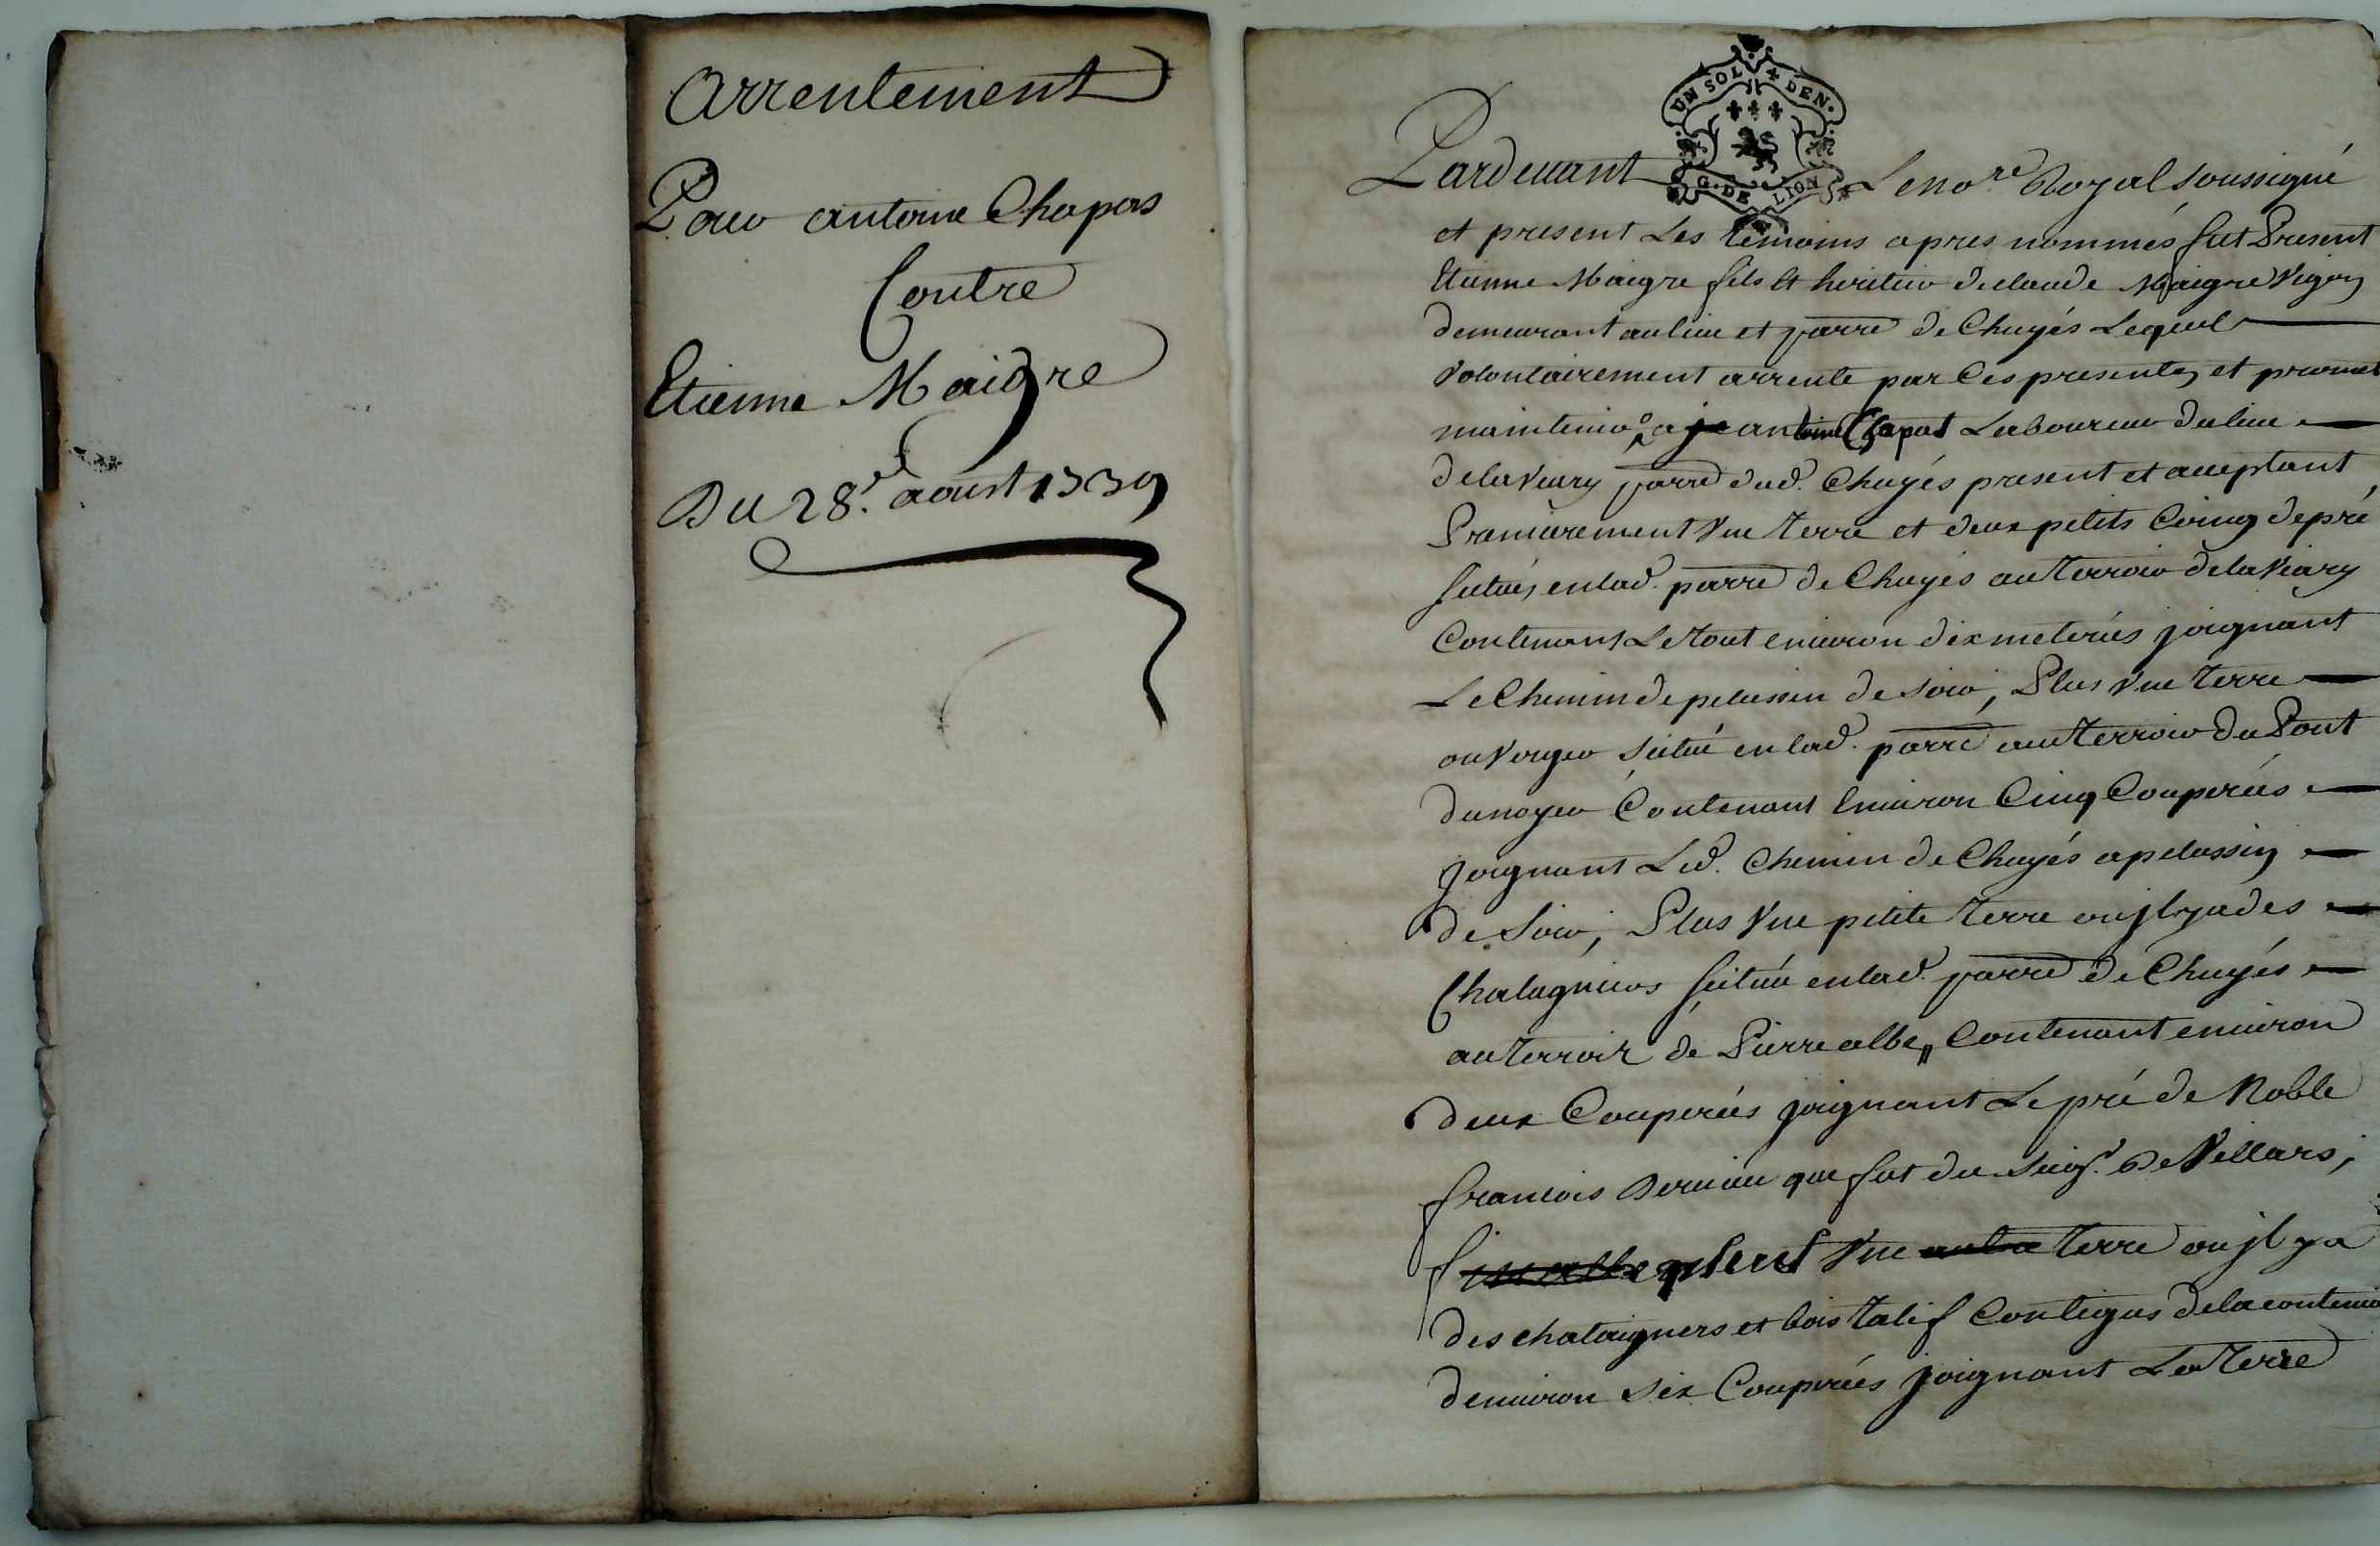 Arrentement
Pour antoine Chapas
Contre
Etienne Maigre
Du 28.e aoust 1739
UN SOL 4 DEN.
G. DE LION
Pardeuant Le no.re Royal soussigné
et present Les temoins apres nommés fut Present
Etienne Maigre fils et heritier de claude Maigre Vigñ
demeurant au lieu et parre de Chuyés Lequel
Volontairement arrente par Ces presentes et promet
maintenir a antoine Chapas Laboureur du lieu
de la Viary parre dud. Chuyés present et acceptant
Premierement Vne terre et deux petits Coings de pré
situés en lad. parre de Chuyés au terroir de la Viary
Contenant Le tout enuiron dix meterées joignant
Le Chemin de pelussin de soir, Plus Vne terre
ou Verger situé en lad. parre au terroir du Pont
du noyer Contenant Enuiron Cinq Couperées
joignant Led. Chemin de Chuyés a pelussin
de soir, Plus Vne petite terre ou jl y a des
Chatagniers située en lad. parre de Chuyés
au terroir de Pierre albe, Contenant enuiron
deux Couperées joignant Le pré de Noble
francois que fut du seigr. de Villars,
plus Vne autre terre ou jl y a
des chataigners et bois talif Contigus de la contenue
denuiron six Couperées joignant La terre